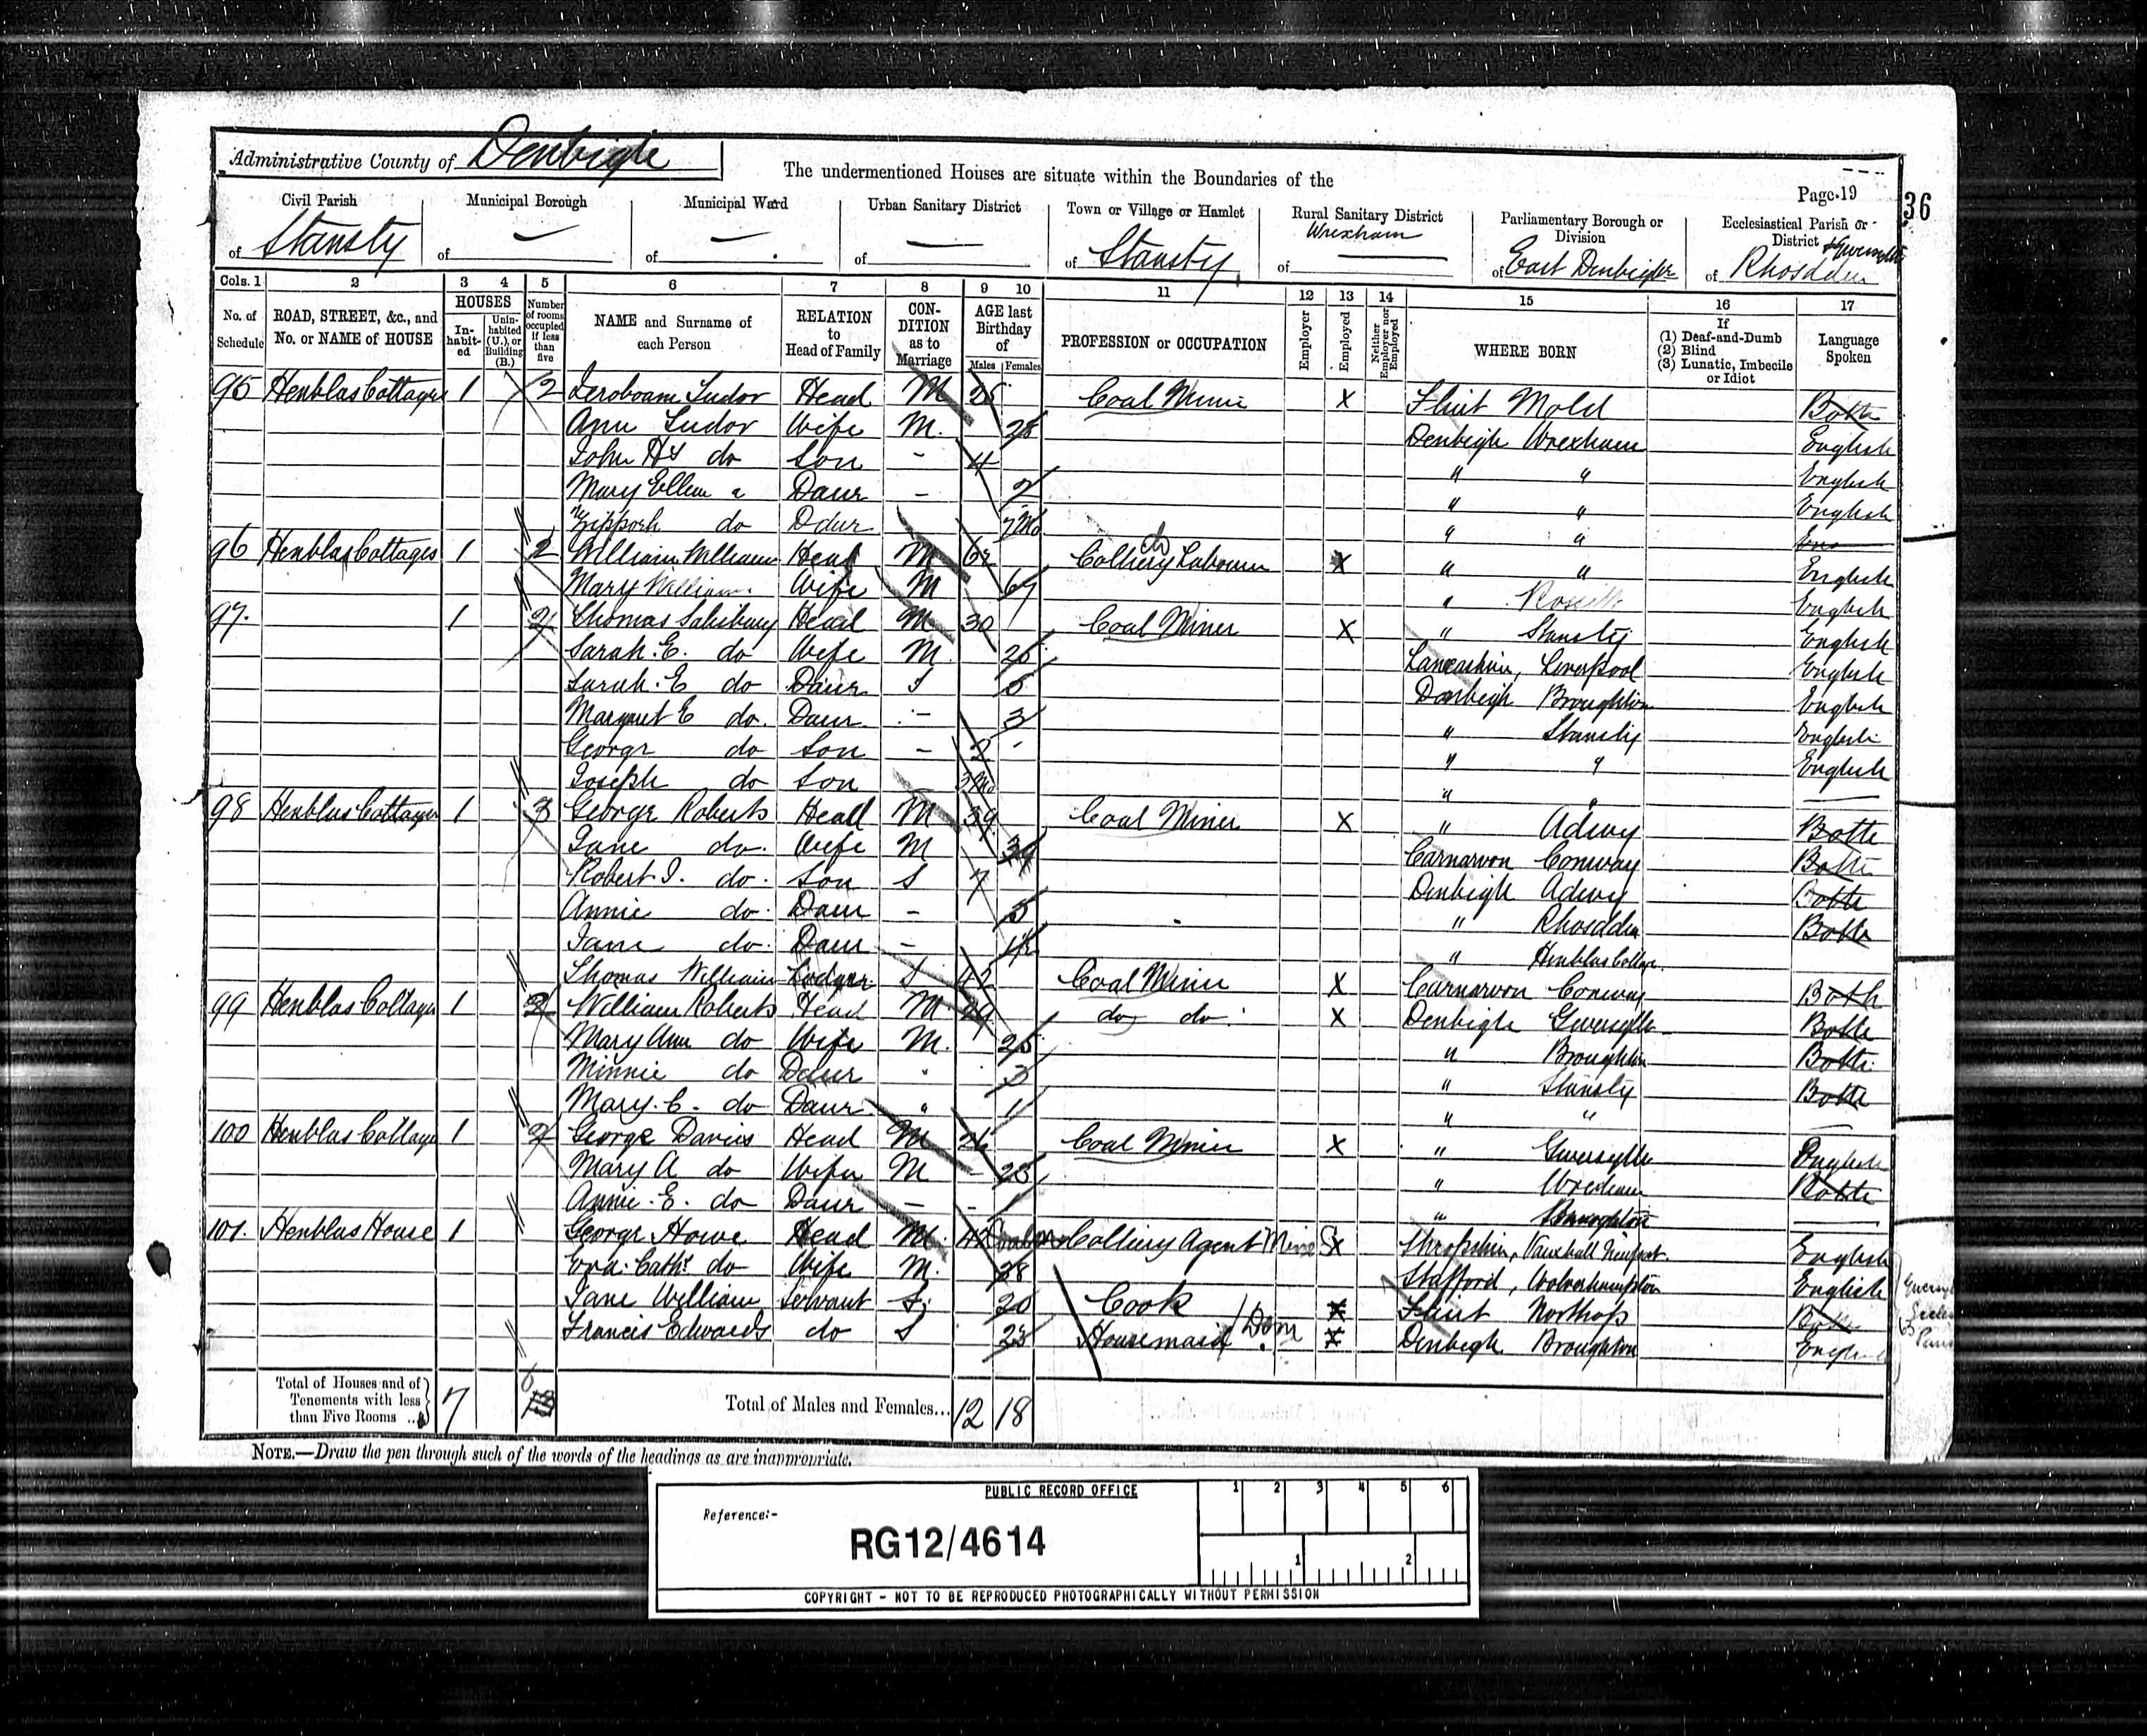 Administrative County of Denbigh
The undermentioned Houses are situate within the Boundaries of the
Page 19
36
Civil Parish of Stansty
Municipal Borough of —
Municipal Ward of —
Urban Sanitary District of —
Town or Village or Hamlet of Stansty
Rural Sanitary District Wrexham of —
Parliamentary Borough or Division of East Denbigh
Ecclesiastical Parish or District of Rhosddu
Cols. 1 2 3 4 5 6 7 8 9 10 11 12 13 14 15 16 17
No. of Schedule
ROAD, STREET, &c., and No. or NAME of HOUSE
HOUSES
In-habit-ed
Unin-habited (U.), or Building (B.)
Number of rooms occupied if less than five
NAME and Surname of each Person
RELATION to Head of Family
CON-DITION as to Marriage
AGE last Birthday of
Males Females
PROFESSION or OCCUPATION
Employer
Employed
Neither Employer nor Employed
WHERE BORN
If
(1) Deaf-and-Dumb
(2) Blind
(3) Lunatic, Imbecile or Idiot
Language Spoken
95 Henblas Cottages 1 2 Jeroboam Tudor Head M 25 Coal Miner X Flint Mold Both
Ann Tudor Wife M. 28 Denbigh Wrexham English
John Hy do Son - 4 " " English
Mary Ellen " Daur - 2 " " English
Zipporh do Daur 7Mo " "
96 Henblas Cottages 1 2 William Williams Head M 62 Colliery Labourer X " " English
Mary Williams Wife M 67 " English
97. 1 2 Thomas Salisbury Head M 30 Coal Miner X " Stansty English
Sarah. E. do Wife M. 25 Lancashire, Liverpool English
Sarah. E do Daur S 5 Denbigh Broughton English
Margaret E do. Daur - 3 " Stansty English
George do Son - 2 " " English
Joseph do Son 3Mo " "
98 Henblas Cottages 1 3 George Roberts Head M 39 Coal Miner X " Adwy Both
Jane do. Wife M Carnarvon Conway Both
Robert J. do. Son S 7 Denbigh Adwy Both
Annie do. Daur - 5 " Rhosddu Both
Jane do. Daur - " Henblas Cottage
Thomas William Lodger S 42 Coal Miner X Carnarvon Conway Both
99 Henblas Cottages 1 William Roberts Head M 29 do do X Denbigh Gwersyllt Both
Mary Ann do Wife M. 25 " Broughton Both
Minnie do Daur " 3 " Stansty Both
Mary. C. do Daur " 1 " "
100 Henblas Cottage 1 2 George Davies Head M 26 Coal Miner X " Gwersyllt English
Mary A do Wife M - 23 " Wrexham Both
Annie. E. do Daur - - 1 " Broughton
101. Henblas House 1 George Howe Head M. 42 Colliery Agent Mine S X Shropshire, Vauxhall Newport English
Eva. Cathe. do Wife M. 38 Stafford, Wolverhampton English
Jane William Servant S. 20 Cook Dom X Flint Northop Both
Francis Edwards do S 23 Housemaid X Denbigh Broughton English
Total of Houses and of Tenements with less than Five Rooms 7 6
Total of Males and Females... 12 18
NOTE.—Draw the pen through such of the words of the headings as are inappropriate.
PUBLIC RECORD OFFICE
1 2 3 4 5 6
Reference:-
RG12/4614
1 2
COPYRIGHT - NOT TO BE REPRODUCED PHOTOGRAPHICALLY WITHOUT PERMISSION